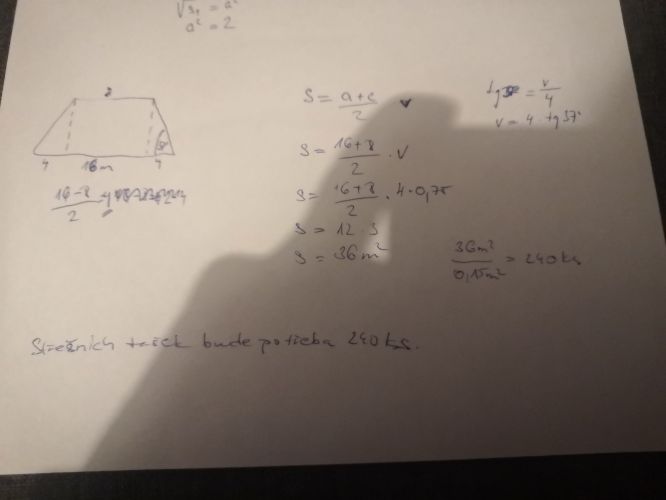 √s₁ = a²
a² = 2
8
4 16m 4
16-8
2
S = a+c / 2 v
S = 16+8 / 2 · v
S = 16+8 / 2 · 4·0,75
S = 12 · 3
S = 36m²
tg = v / 4
v = 4 · tg 37°
36m² / 0,15m² = 240 ks
Střešních tašek bude potřeba 240 ks.